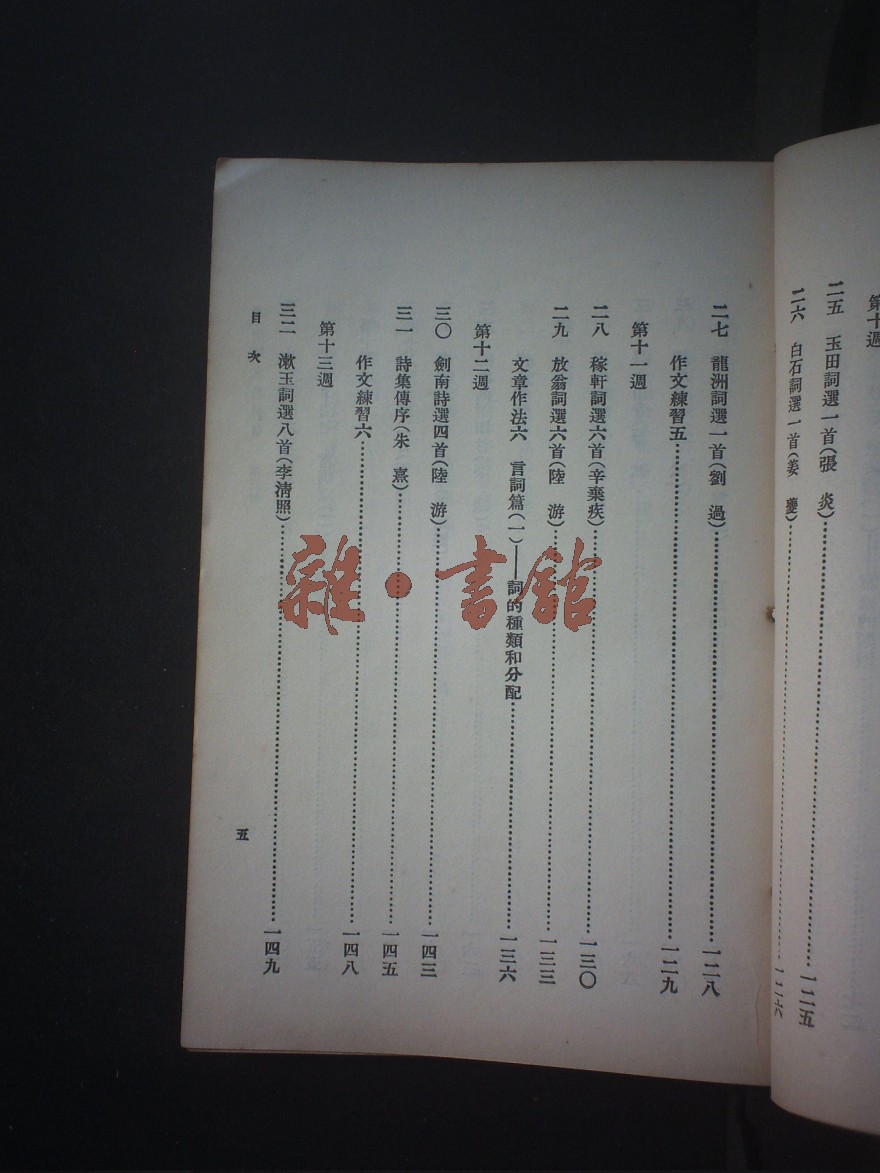 第十週
二五 玉田詞選一首(張 炎)……一二五
二六 白石詞選一首(姜 夔)……一二六
二七 龍洲詞選一首(劉 過)……一二八
作文練習五……一二九
第十一週
二八 稼軒詞選六首(辛棄疾)……一三〇
二九 放翁詞選六首(陸 游)……一三三
文章作法六 言詞篇(一)——詞的種類和分配……一三六
第十二週
三〇 劍南詩選四首(陸 游)……一四三
三一 詩集傳序(朱 熹)……一四五
作文練習六……一四八
第十三週
三二 漱玉詞選八首(李清照)……一四九
目 次
五
雜·書館